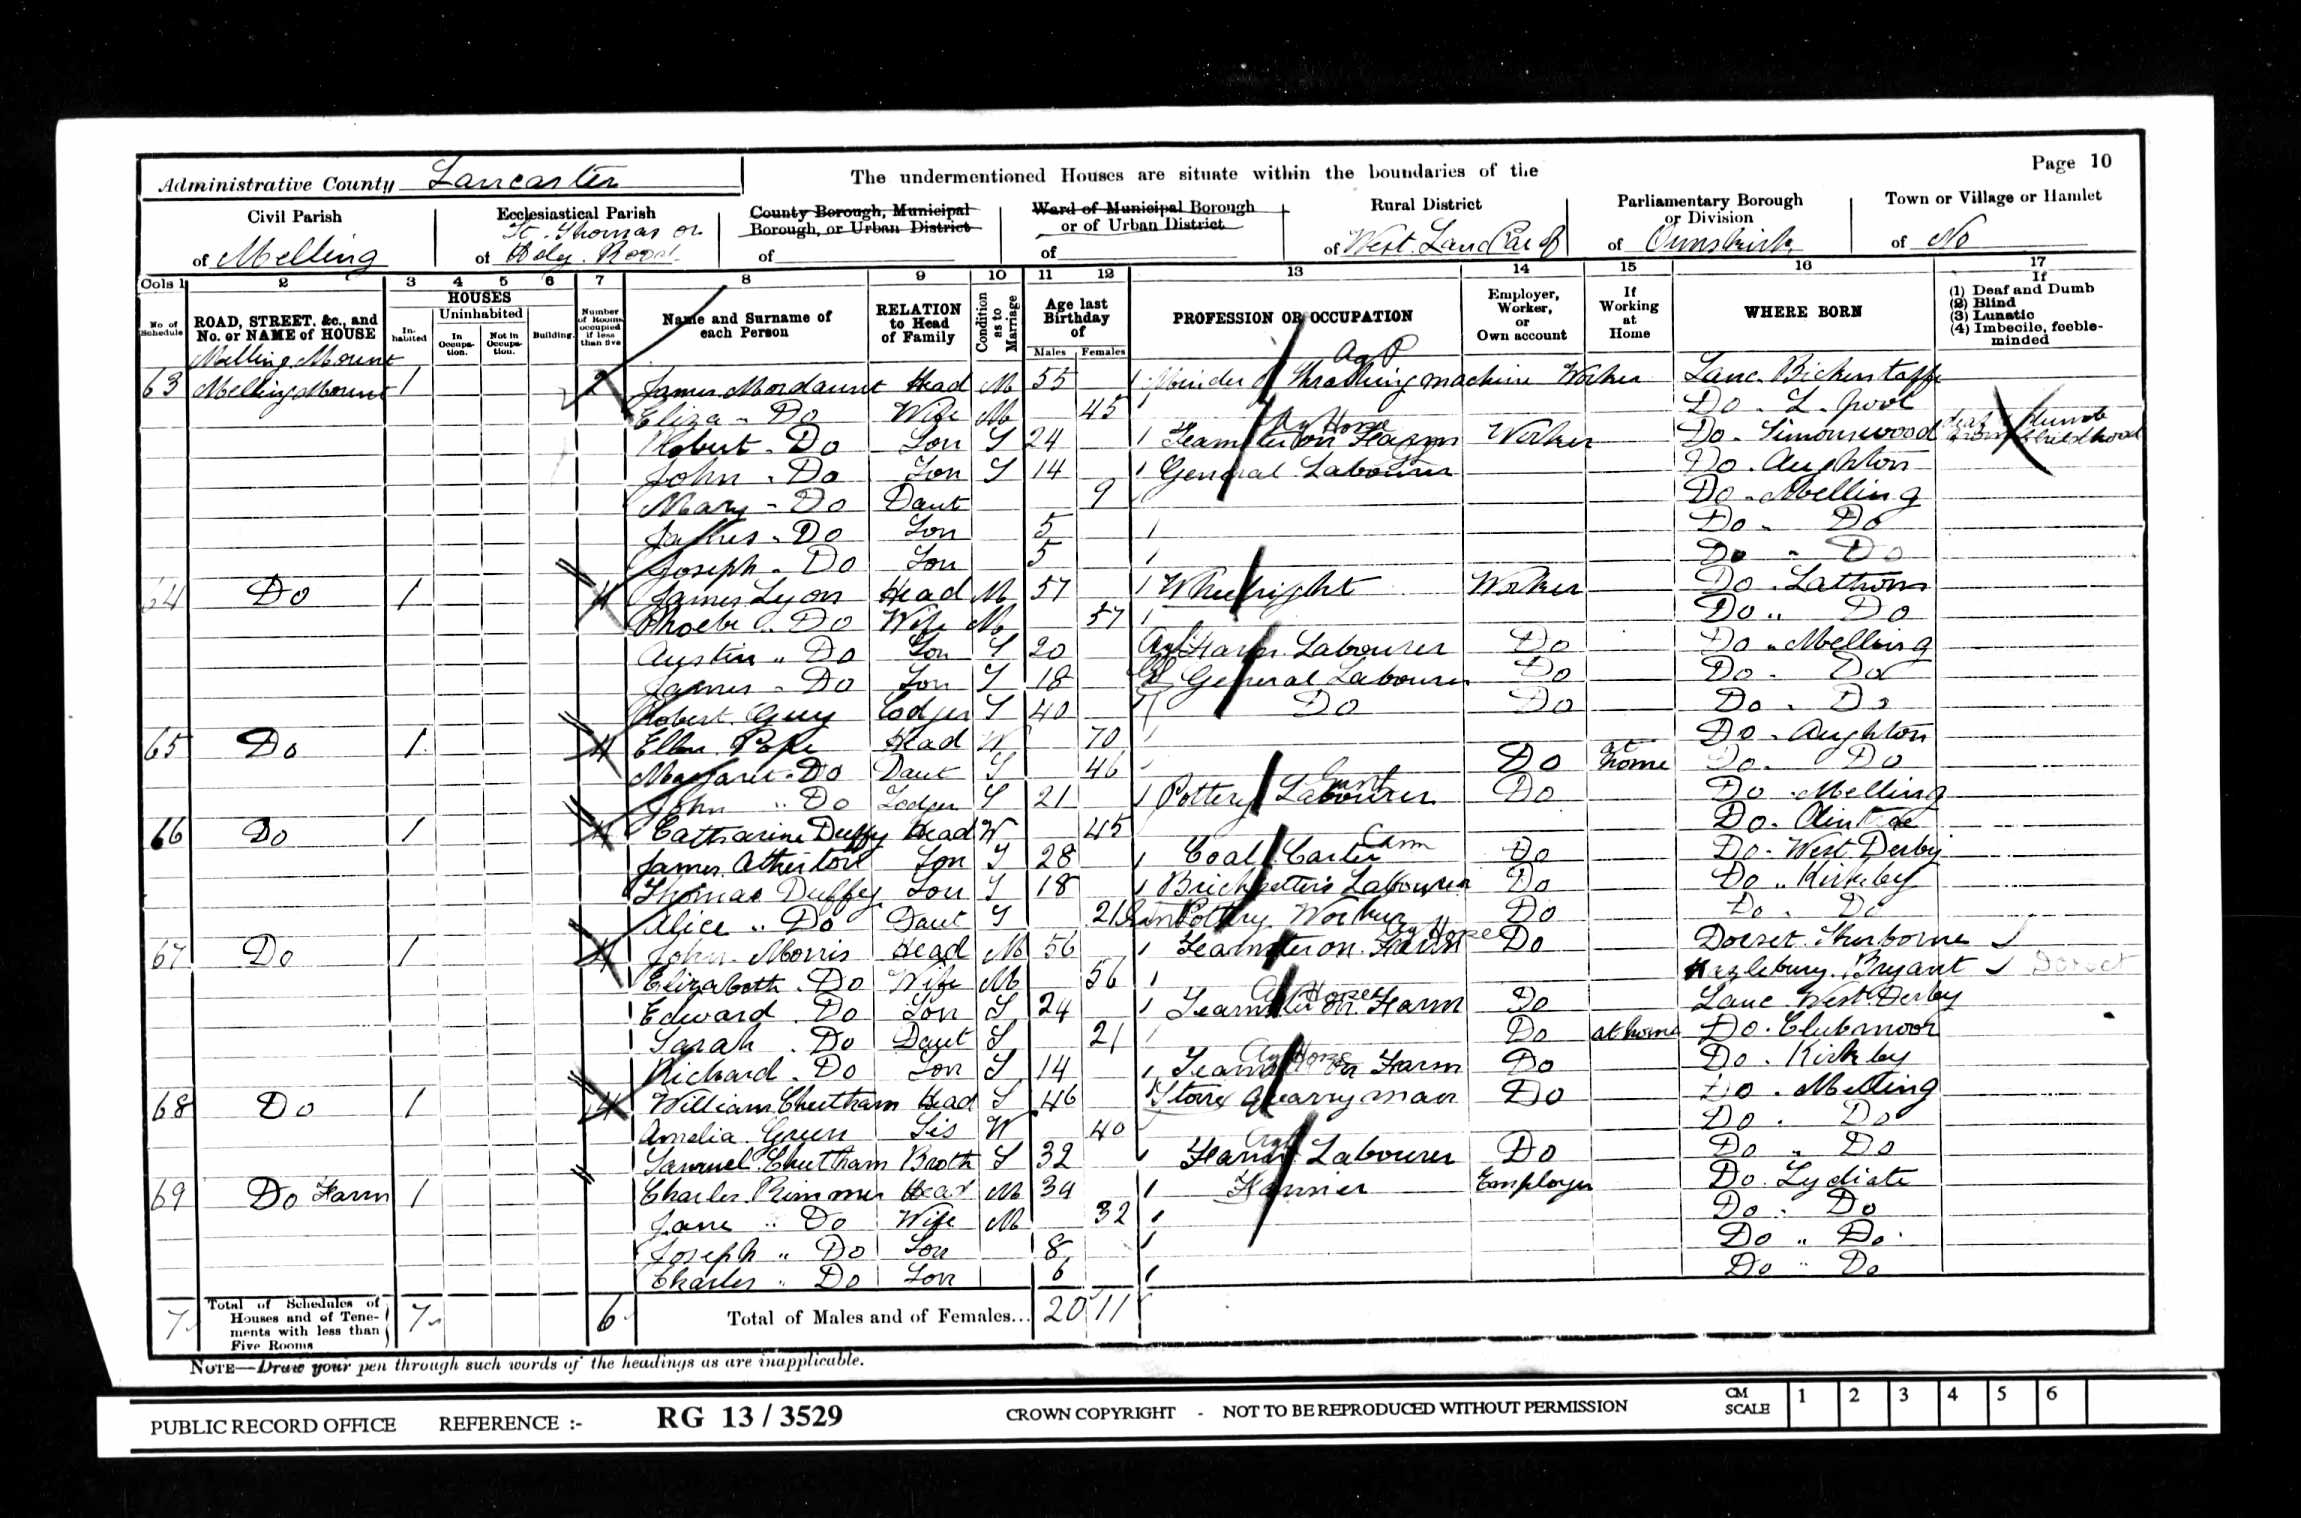 Page 10
Administrative County Lancaster
The undermentioned Houses are situate within the boundaries of the
Civil Parish
of Melling
Ecclesiastical Parish
of St. Thomas or Holy Rood
County Borough, Municipal Borough, or Urban District
of
Ward of Municipal Borough or of Urban District
of
Rural District
of West Lanc
Parliamentary Borough or Division
of Ormskirk
Town or Village or Hamlet
of No
Cols 1 2 3 4 5 6 7 8 9 10 11 12 13 14 15 16 17
No. of Schedule
ROAD, STREET, &c., and No. or NAME of HOUSE
HOUSES
Inhabited
Uninhabited
In Occupation.
Not in Occupation.
Building.
Number of Rooms occupied if less than five
Name and Surname of each Person
RELATION to Head of Family
Condition as to Marriage
Age last Birthday of
Males Females
PROFESSION OR OCCUPATION
Employer, Worker, or Own account
If Working at Home
WHERE BORN
If
(1) Deaf and Dumb
(2) Blind
(3) Lunatic
(4) Imbecile, feeble-minded
Melling Mount
63 Melling Mount 1 2 James Mordaunt Head M 55 Minder of Thrashing machine Worker Lanc. Bickerstaffe
Eliza - Do Wife M 45 Do - L. pool
Robert - Do Son S 24 Teamster on Farm Ag Horse Worker Do - Simonswood deaf & dumb from childhood
John - Do Son S 14 General Labourer Do - Aughton
Mary - Do Daut 9 Do - Melling
James - Do Son 5 Do - Do
Joseph - Do Son 5 Do - Do
64 Do 1 4 James Lyon Head M 57 Wheelright Worker Do - Lathom
Phoebe " Do Wife M 57 Do " Do
Austin " Do Son S 20 Farm Labourer Do Do - Melling
James - Do Son S 18 General Labourer Do Do - Do
Robert Guy Lodger S 40 Do Do Do - Do
65 Do 1 4 Ellen Pope Head W 70 Do - Aughton
Margaret - Do Daut S 46 Do at home Do - Do
John " Do Lodger S 21 Pottery Labourer Do Do - Melling
66 Do 1 4 Catharine Duffy Head W 45 Do - Aintree
James Atherton Son S 28 Coal Carter Do Do - West Derby
Thomas Duffy Son S 18 Bricksetters Labourer Do Do " Kirkby
Alice " Do Daut S 21 Pottery Worker Do Do - Do
67 Do 1 4 John Morris Head M 56 Teamster on Farm Ag Horse Do Dorset Sherborne
Elizabeth - Do Wife M 56 Hazlebury Bryant Dorset
Edward - Do Son S 24 Teamster on Farm Ag Horse Do Lanc West Derby
Sarah - Do Daut S 21 Do at home Do - Clubmoor
Richard - Do Son S 14 Teamster on Farm Ag Horse Do Do - Kirkby
68 Do 1 4 William Cheetham Head S 46 Stone Quarryman Do Do - Melling
Amelia Green Sis W 40 Do - Do
Samuel Cheetham Broth S 32 Farm Labourer Do Do " Do
69 Do Farm 1 Charles Rimmer Head M 34 Farmer Employer Do - Lydiate
Jane " Do Wife M 32 Do - Do
Joseph " Do Son 8 Do " Do
Charles " Do Son 6 Do " Do
7 Total of Schedules of Houses and of Tenements with less than Five Rooms 7 6 Total of Males and of Females... 20 11
NOTE—Draw your pen through such words of the headings as are inapplicable.
PUBLIC RECORD OFFICE REFERENCE :- RG 13 / 3529 CROWN COPYRIGHT - NOT TO BE REPRODUCED WITHOUT PERMISSION
CM SCALE 1 2 3 4 5 6